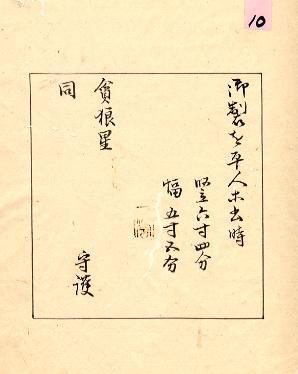 10
御製を平人ニ出時
竪六寸四分
幅五寸五分
貪狼星
同
守護